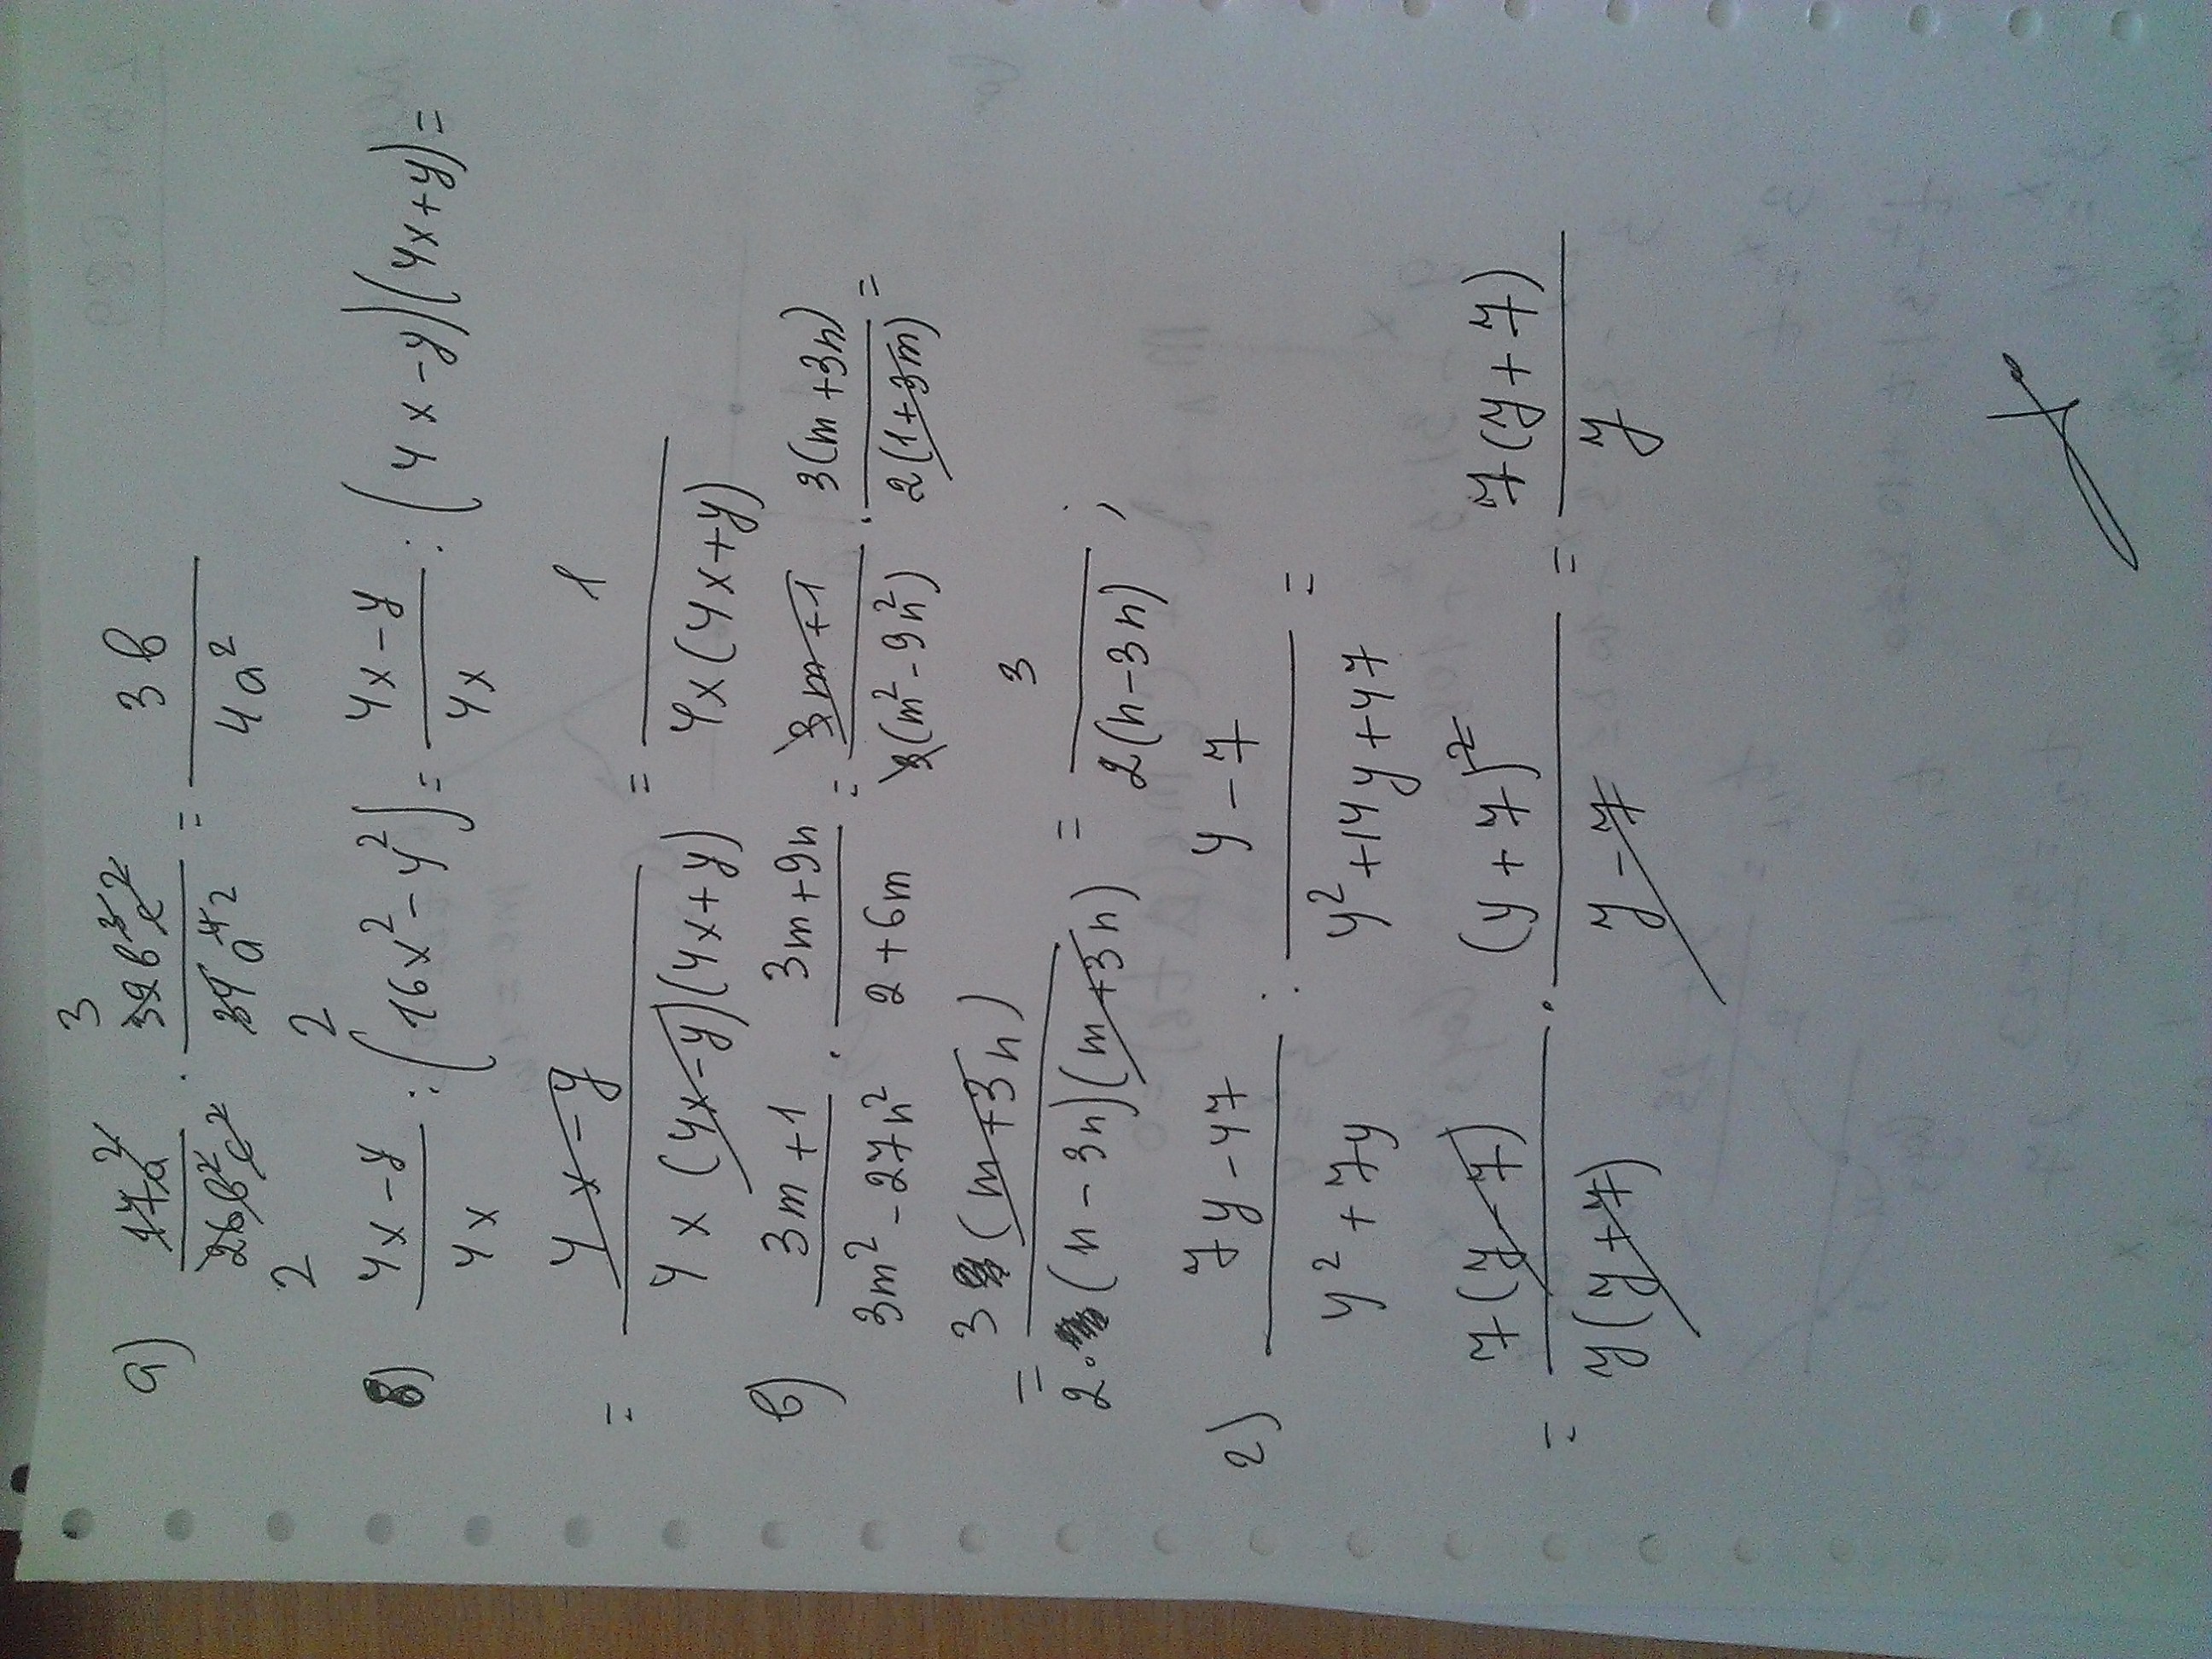 а) 17a²/26b²c² · 39b³c²/34a⁴ = 3b/4a²
б) (4x-y)/4x : (16x²-y²) = (4x-y)/4x : (4x-y)(4x+y) =
= (4x-y)/(4x(4x-y)(4x+y)) = 1/(4x(4x+y))
в) (3m+1)/(3m²-27n²) · (3m+9n)/(2+6m) = (3m+1)/(3(m²-9n²)) · 3(m+3n)/(2(1+3m)) =
= 3(m+3n)/(2·(n-3n)(m+3n)) = 3/(2(n-3n)) ;
г) (7y-47)/(y²+7y) : (y-7)/(y²+14y+47) =
= 7(y-7)/(y(y+7)) · (y+7)²/(y-7) = 7(y+7)/y